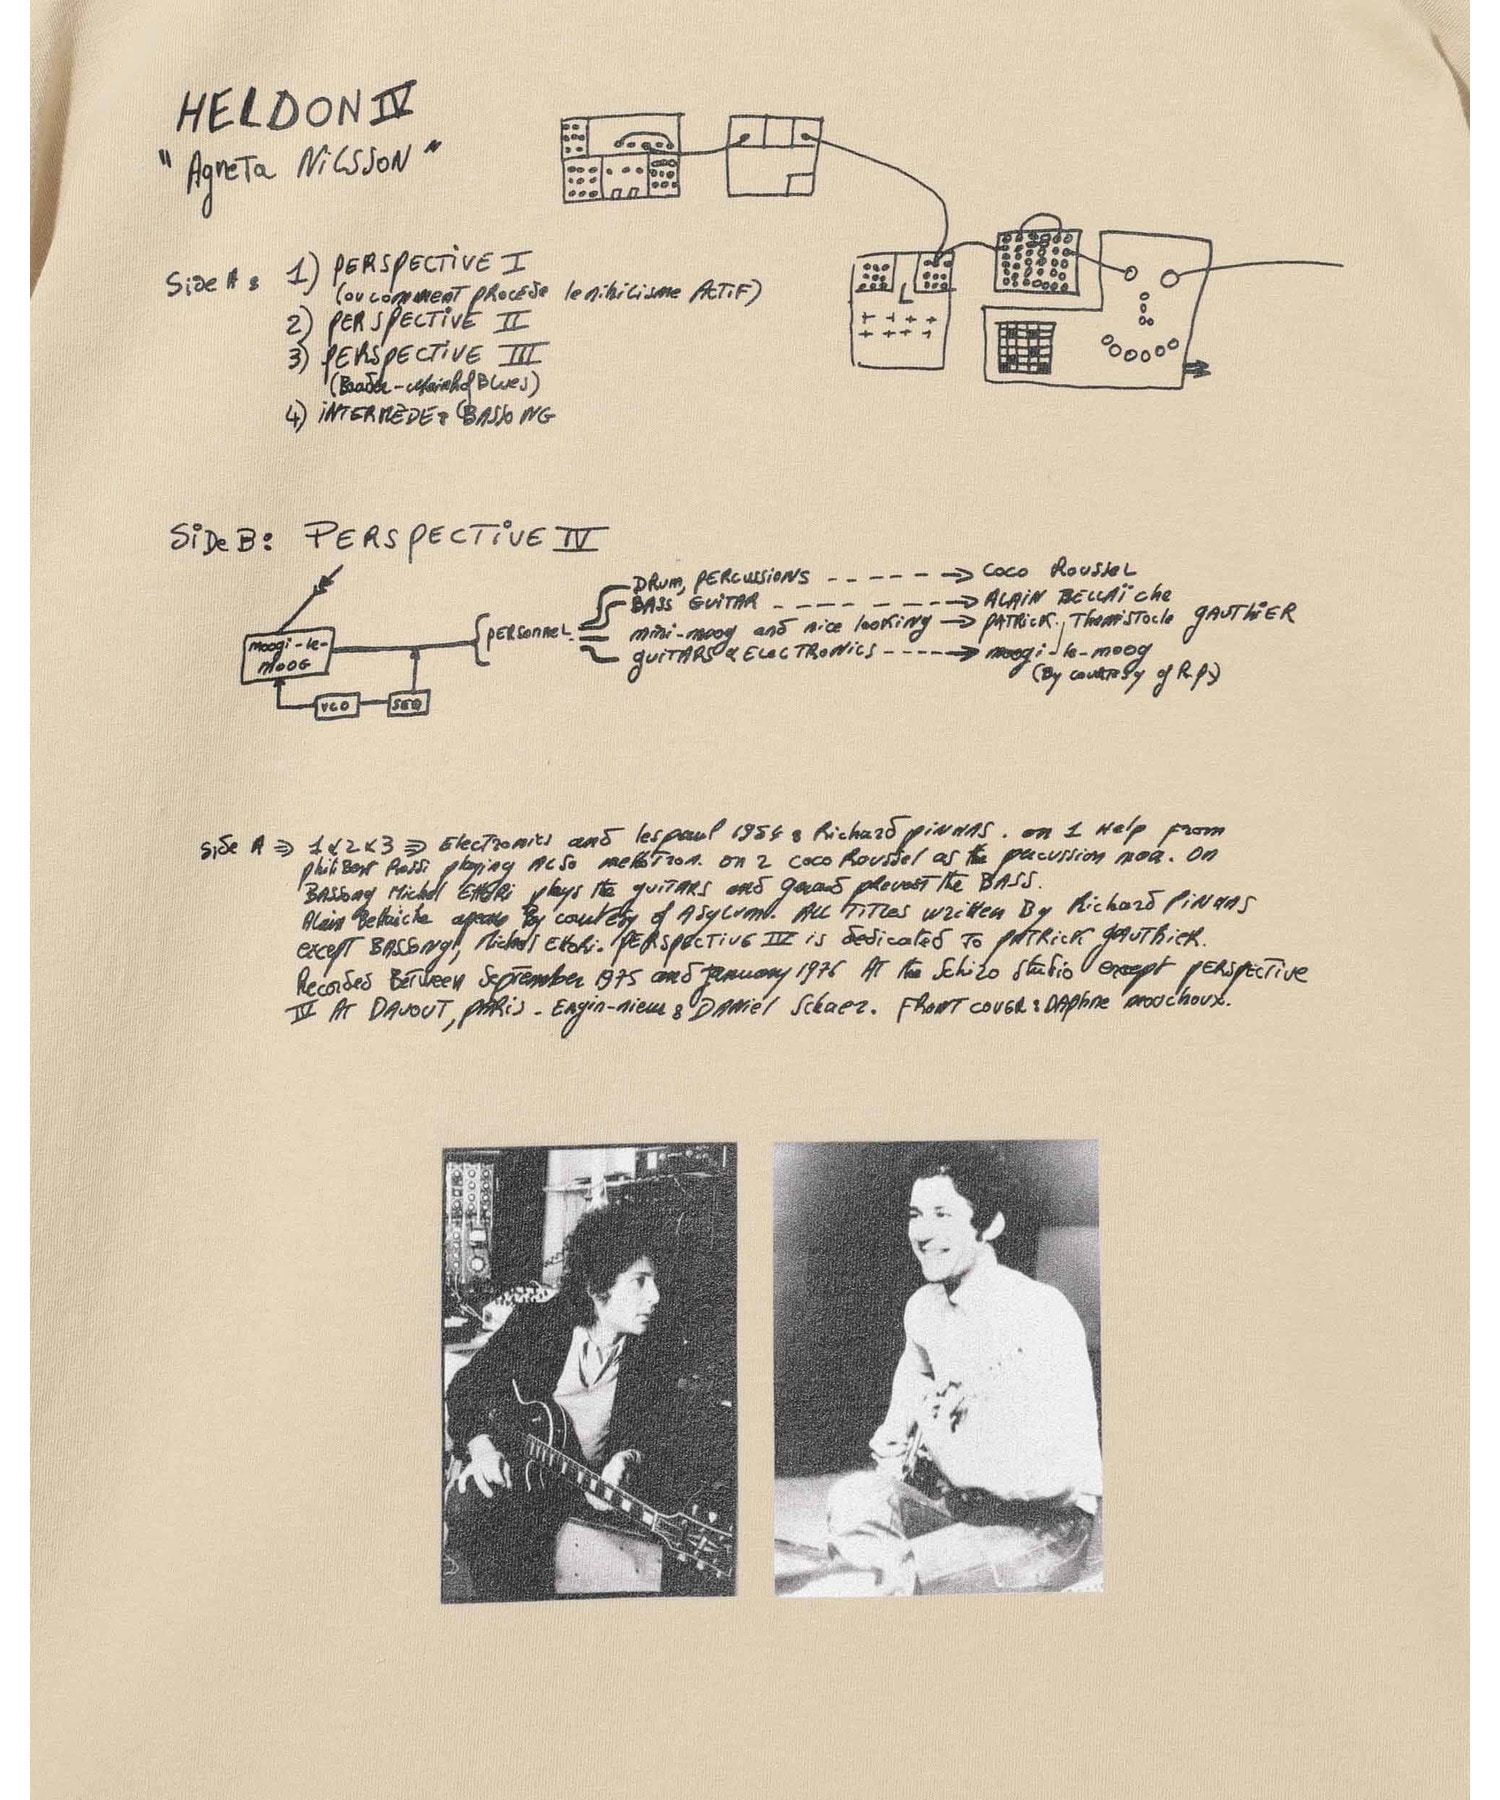 HELDON IV
"Agneta NILSSON"
Side A: 1) PERSPECTIVE I
(ou comment procède le nihilisme ACTIF)
2) PERSPECTIVE II
3) PERSPECTIVE III
(Baader-Meinhof Blues)
4) INTERMEDE: BASSONG
Side B: PERSPECTIVE IV
moogi-le-
MOOG
VCO
SEQ
PERSONNEL
DRUM, PERCUSSIONS ------> COCO ROUSSEL
BASS GUITAR ------> ALAIN BELLAïche
mini-moog and nice looking -> PATRICK, Themistocle GAUTHIER
GUITARS & ELECTRONICS ----> moogi-le-moog
(By courtesy of R.P.)
Side A => 1&2&3 => Electronics and lespaul 1954: Richard PINHAS. on 1 Help From
philibert Rossi playing ALSO mellotron. on 2 coco Roussel as the percussion man. On
BASSong Michel ETTORI plays the guitars and Gerard prevost the BASS.
Alain Bellaiche appears By courtesy of Asylum. ALL TITLES written By Richard PINHAS
except BASSong, Michel Ettori. PERSPECTIVE III is dedicated To PATRICK GAUTHIER.
Recorded Between September 1975 and January 1976 AT the Schizo studio except PERSPECTIVE
IV AT DAVOUT, PARIS - Engin-nieur: DANiel Schaer. FRONT COVER: DAphne mouchoux.